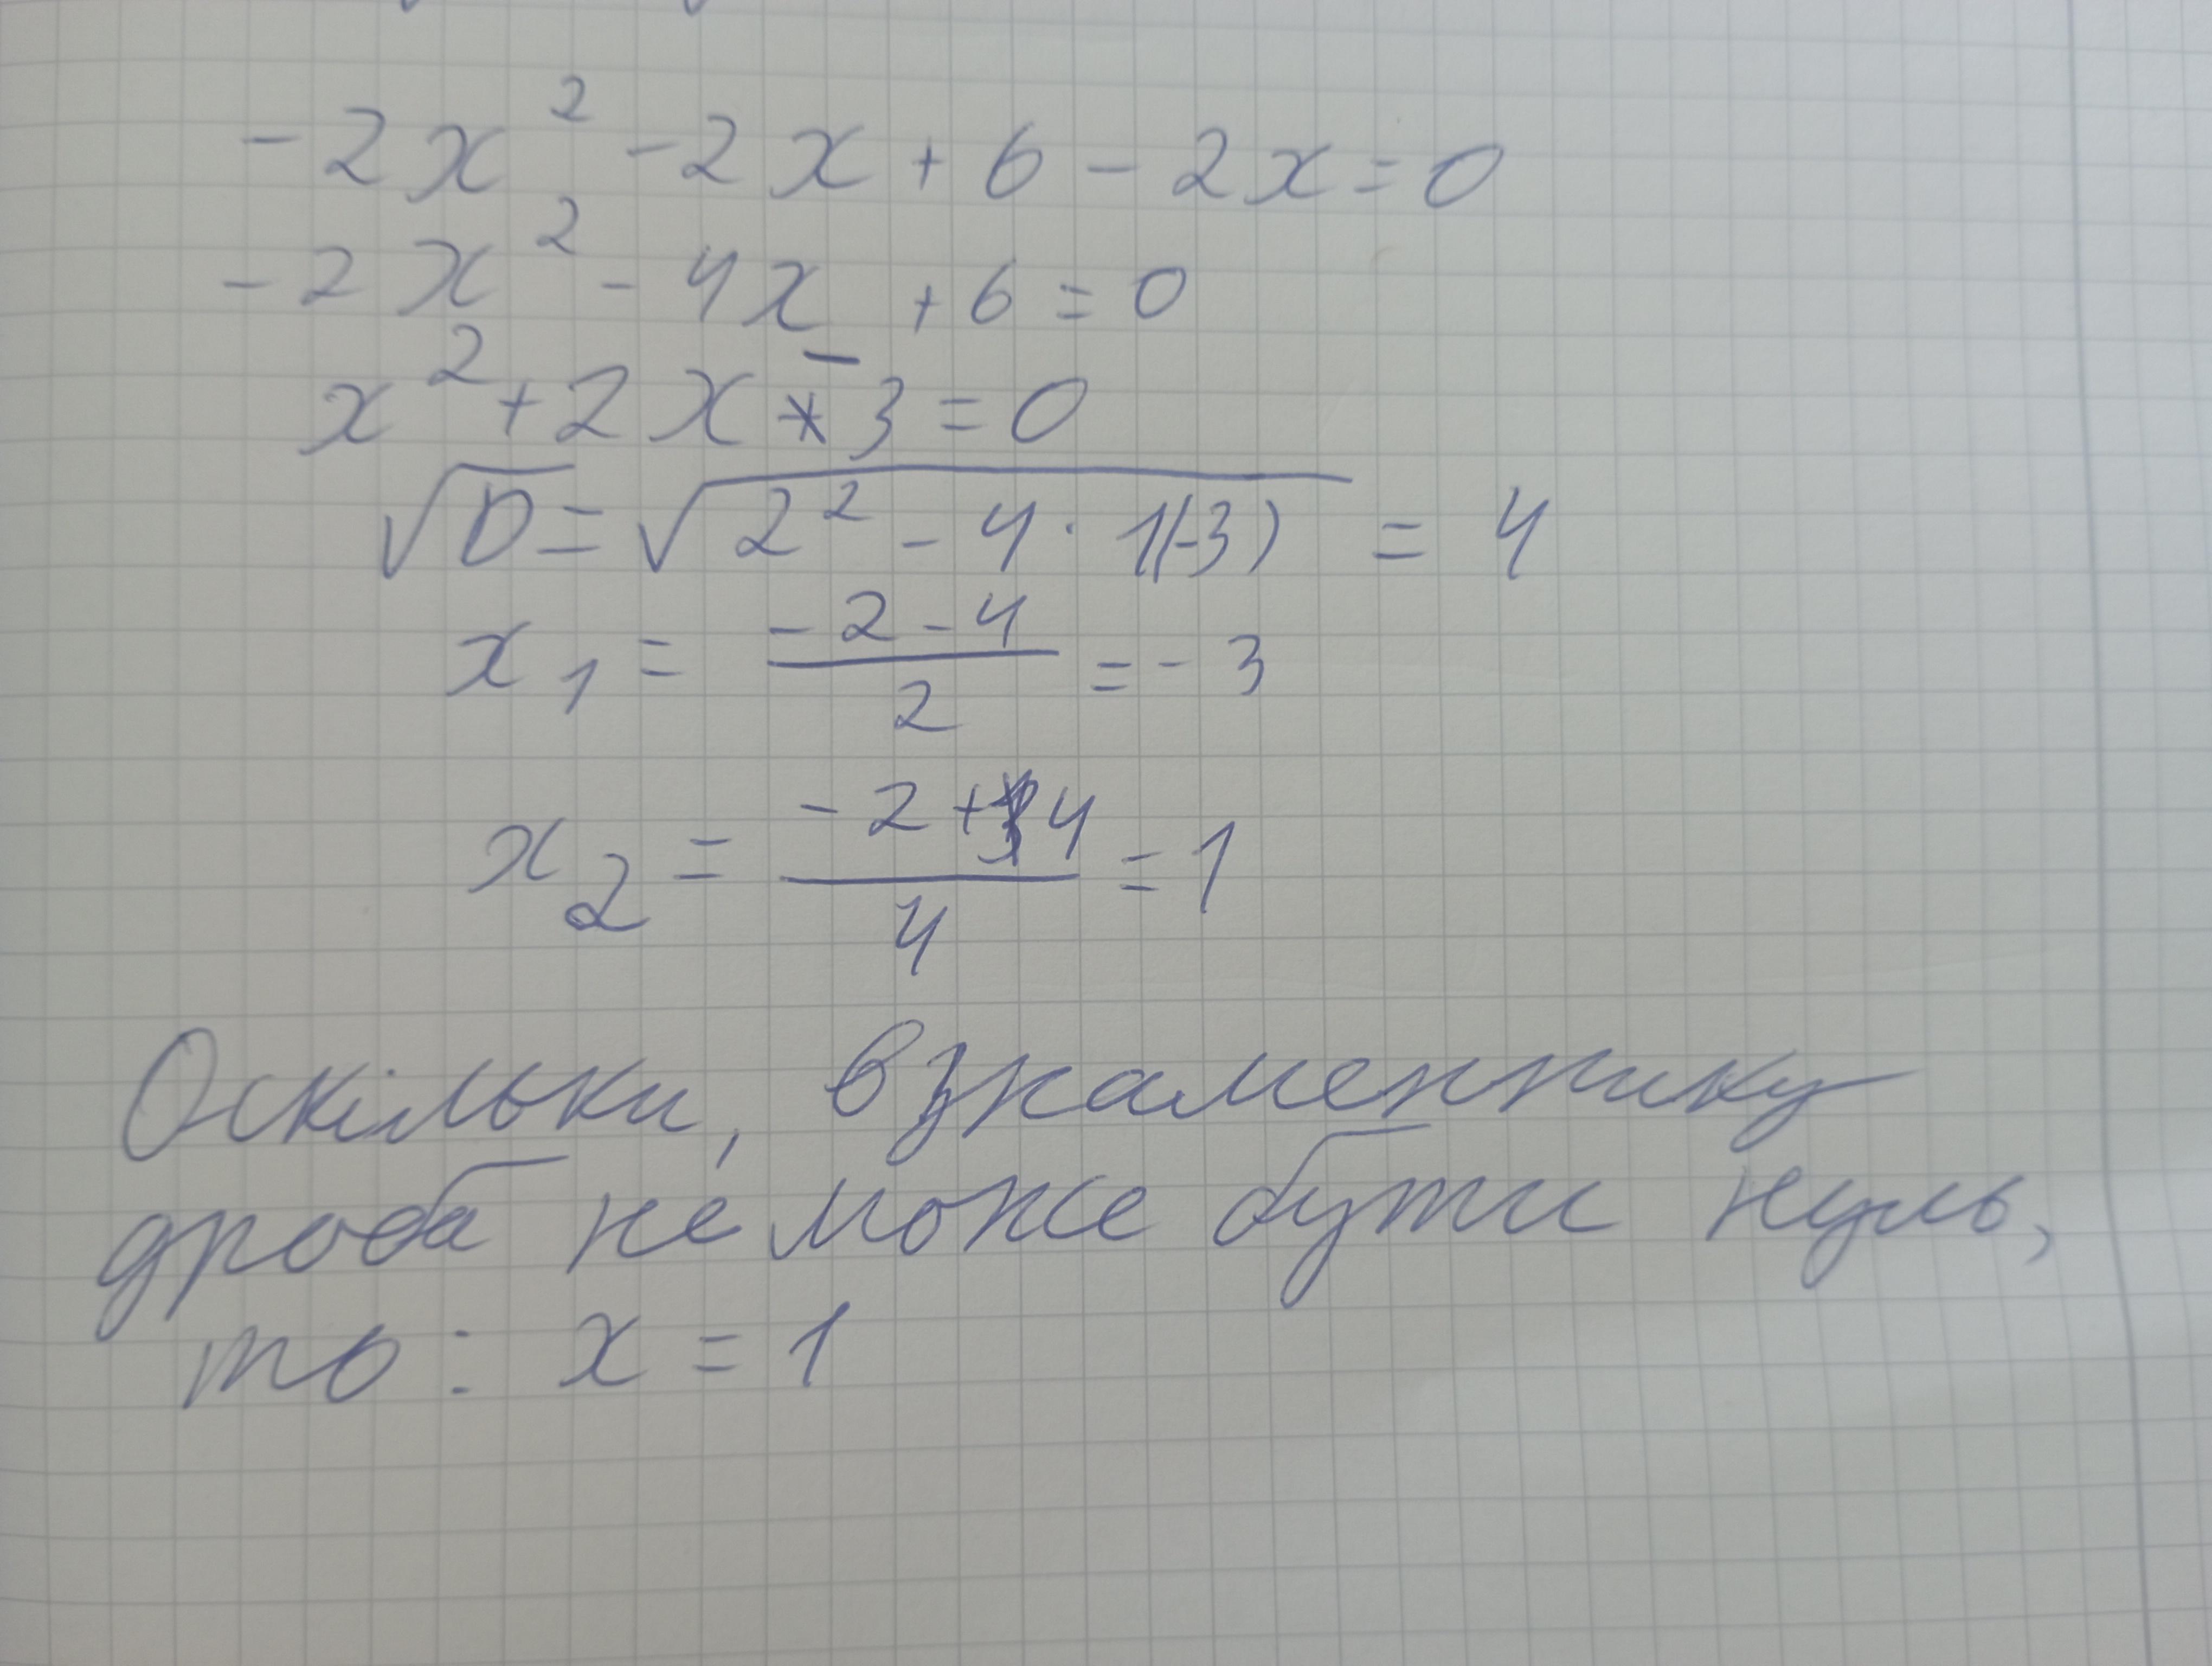 -2x² -2x + 6 - 2x = 0
-2x² - 4x + 6 = 0
x² + 2x - 3 = 0
√D = √(2² - 4 · 1(-3)) = 4
x₁ = (-2 - 4)/2 = -3
x₂ = (-2 + 4)/4 = 1
Оскільки, в знаменнику
дроба не може бути нуль,
то: x = 1